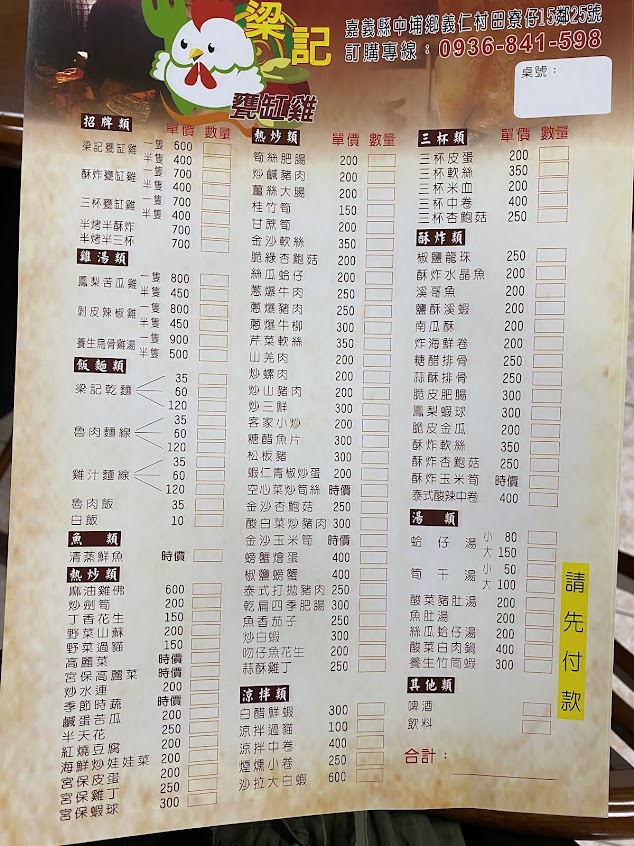 梁記
甕缸雞
嘉義縣中埔鄉義仁村田寮仔15鄰25號
訂購專線：0936-841-598
桌號：
招牌類 單價 數量
梁記甕缸雞 一隻 600
半隻 400
酥炸甕缸雞 一隻 700
半隻 400
三杯甕缸雞 一隻 700
半隻 400
半烤半酥炸 700
半烤半三杯 700
雞湯類
鳳梨苦瓜雞 一隻 800
半隻 450
剝皮辣椒雞 一隻 800
半隻 450
養生烏骨雞湯 一隻 900
半隻 500
飯麵類
梁記乾麵 35
60
120
魯肉麵線 35
60
120
雞汁麵線 35
60
120
魯肉飯 35
白飯 10
魚類
清蒸鮮魚 時價
熱炒類
麻油雞佛 600
炒劍筍 200
丁香花生 150
野菜山蘇 200
野菜過貓 150
高麗菜 時價
宮保高麗菜 時價
炒水連 200
季節時蔬 時價
鹹蛋苦瓜 200
半天花 250
紅燒豆腐 200
海鮮炒娃娃菜 200
宮保皮蛋 200
宮保雞丁 250
宮保蝦球 300
熱炒類 單價 數量
筍絲肥腸 200
炒鹹豬肉 200
薑絲大腸 200
桂竹筍 150
甘蔗筍 200
金沙軟絲 350
脆綠杏鮑菇 200
絲瓜蛤仔 200
蔥爆牛肉 250
蔥爆豬肉 250
蔥爆牛柳 300
芹菜軟絲 350
山羌肉 200
炒螺肉 200
炒山豬肉 200
炒三鮮 300
客家小炒 200
糖醋魚片 300
松板豬 300
蝦仁青椒炒蛋 200
空心菜炒筍絲 時價
金沙杏鮑菇 250
酸白菜炒豬肉 300
金沙玉米筍 時價
螃蟹燴蛋 400
椒鹽螃蟹 400
泰式打拋豬肉 250
乾扁四季肥腸 300
魚香茄子 250
炒白蝦 300
吻仔魚花生 200
蒜酥雞丁 250
涼拌類
白醋鮮蝦 300
涼拌過貓 100
涼拌中卷 400
煙燻小卷 250
沙拉大白蝦 600
三杯類 單價 數量
三杯皮蛋 200
三杯軟絲 350
三杯米血 200
三杯中卷 400
三杯杏鮑菇 250
酥炸類
椒鹽龍珠 250
酥炸水晶魚 200
溪哥魚 200
鹽酥溪蝦 200
南瓜酥 200
炸海鮮卷 200
糖醋排骨 250
蒜酥排骨 250
脆皮肥腸 300
鳳梨蝦球 300
脆皮金瓜 200
酥炸軟絲 350
酥炸杏鮑菇 250
酥炸玉米筍 時價
泰式酸辣中卷 400
湯類
蛤仔湯 小 80
大 150
筍干湯 小 50
大 100
酸菜豬肚湯 200
魚肚湯 200
絲瓜蛤仔湯 200
酸菜白肉鍋 400
養生竹筒蝦 300
其他類
啤酒
飲料
合計：
請先付款